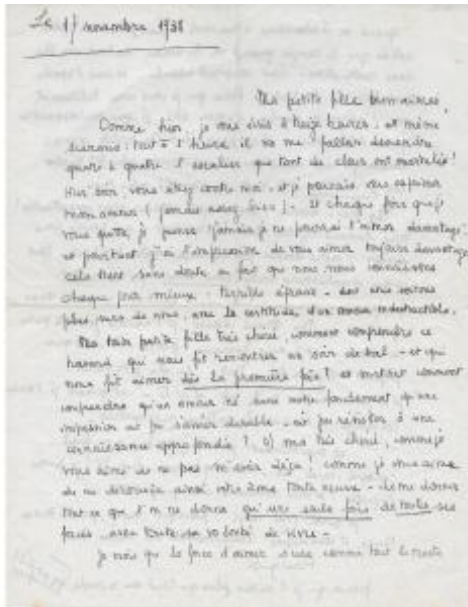 Le 17 novembre 1938
Ma petite fille bien aimée,
Comme hier, je vous écris à treize heures, et même
tout à l'heure il va me falloir descendre
quatre à quatre l'escalier que tant de clous ont martelé !
Hier soir, vous étiez contre moi, et je pouvais vous exprimer
mon amour (jamais assez bien) - Et chaque fois que je
vous quitte, je pense "jamais je ne pourrai l'aimer davantage",
et pourtant j'ai l'impression de vous aimer toujours davantage
cela tient sans doute au fait que nous nous connaissons
chaque jour mieux : terrible épreuve - dont nous sortons
plus sûrs de nous, avec la certitude d'un amour indestructible.
Ma toute petite fille très chérie, comment comprendre ce
hasard qui nous fit rencontrer un soir de bal - et qui
nous fit aimer dès la première fois ? et surtout comment
comprendre qu'un amour né sans autre fondement qu'une
impression ait pu s'avérer durable - ait pu résister à une
connaissance approfondie ? Ô ma très chérie, comme je
vous aime de ne pas m'avoir déçu ! comme je vous aime
de me découvrir ainsi votre âme toute neuve - de me donner
tout ce que l'on ne donne qu'une seule fois de toutes ses
forces avec toute sa volonté de vivre -
Je crois que la force d'aimer s'use comme tout le reste